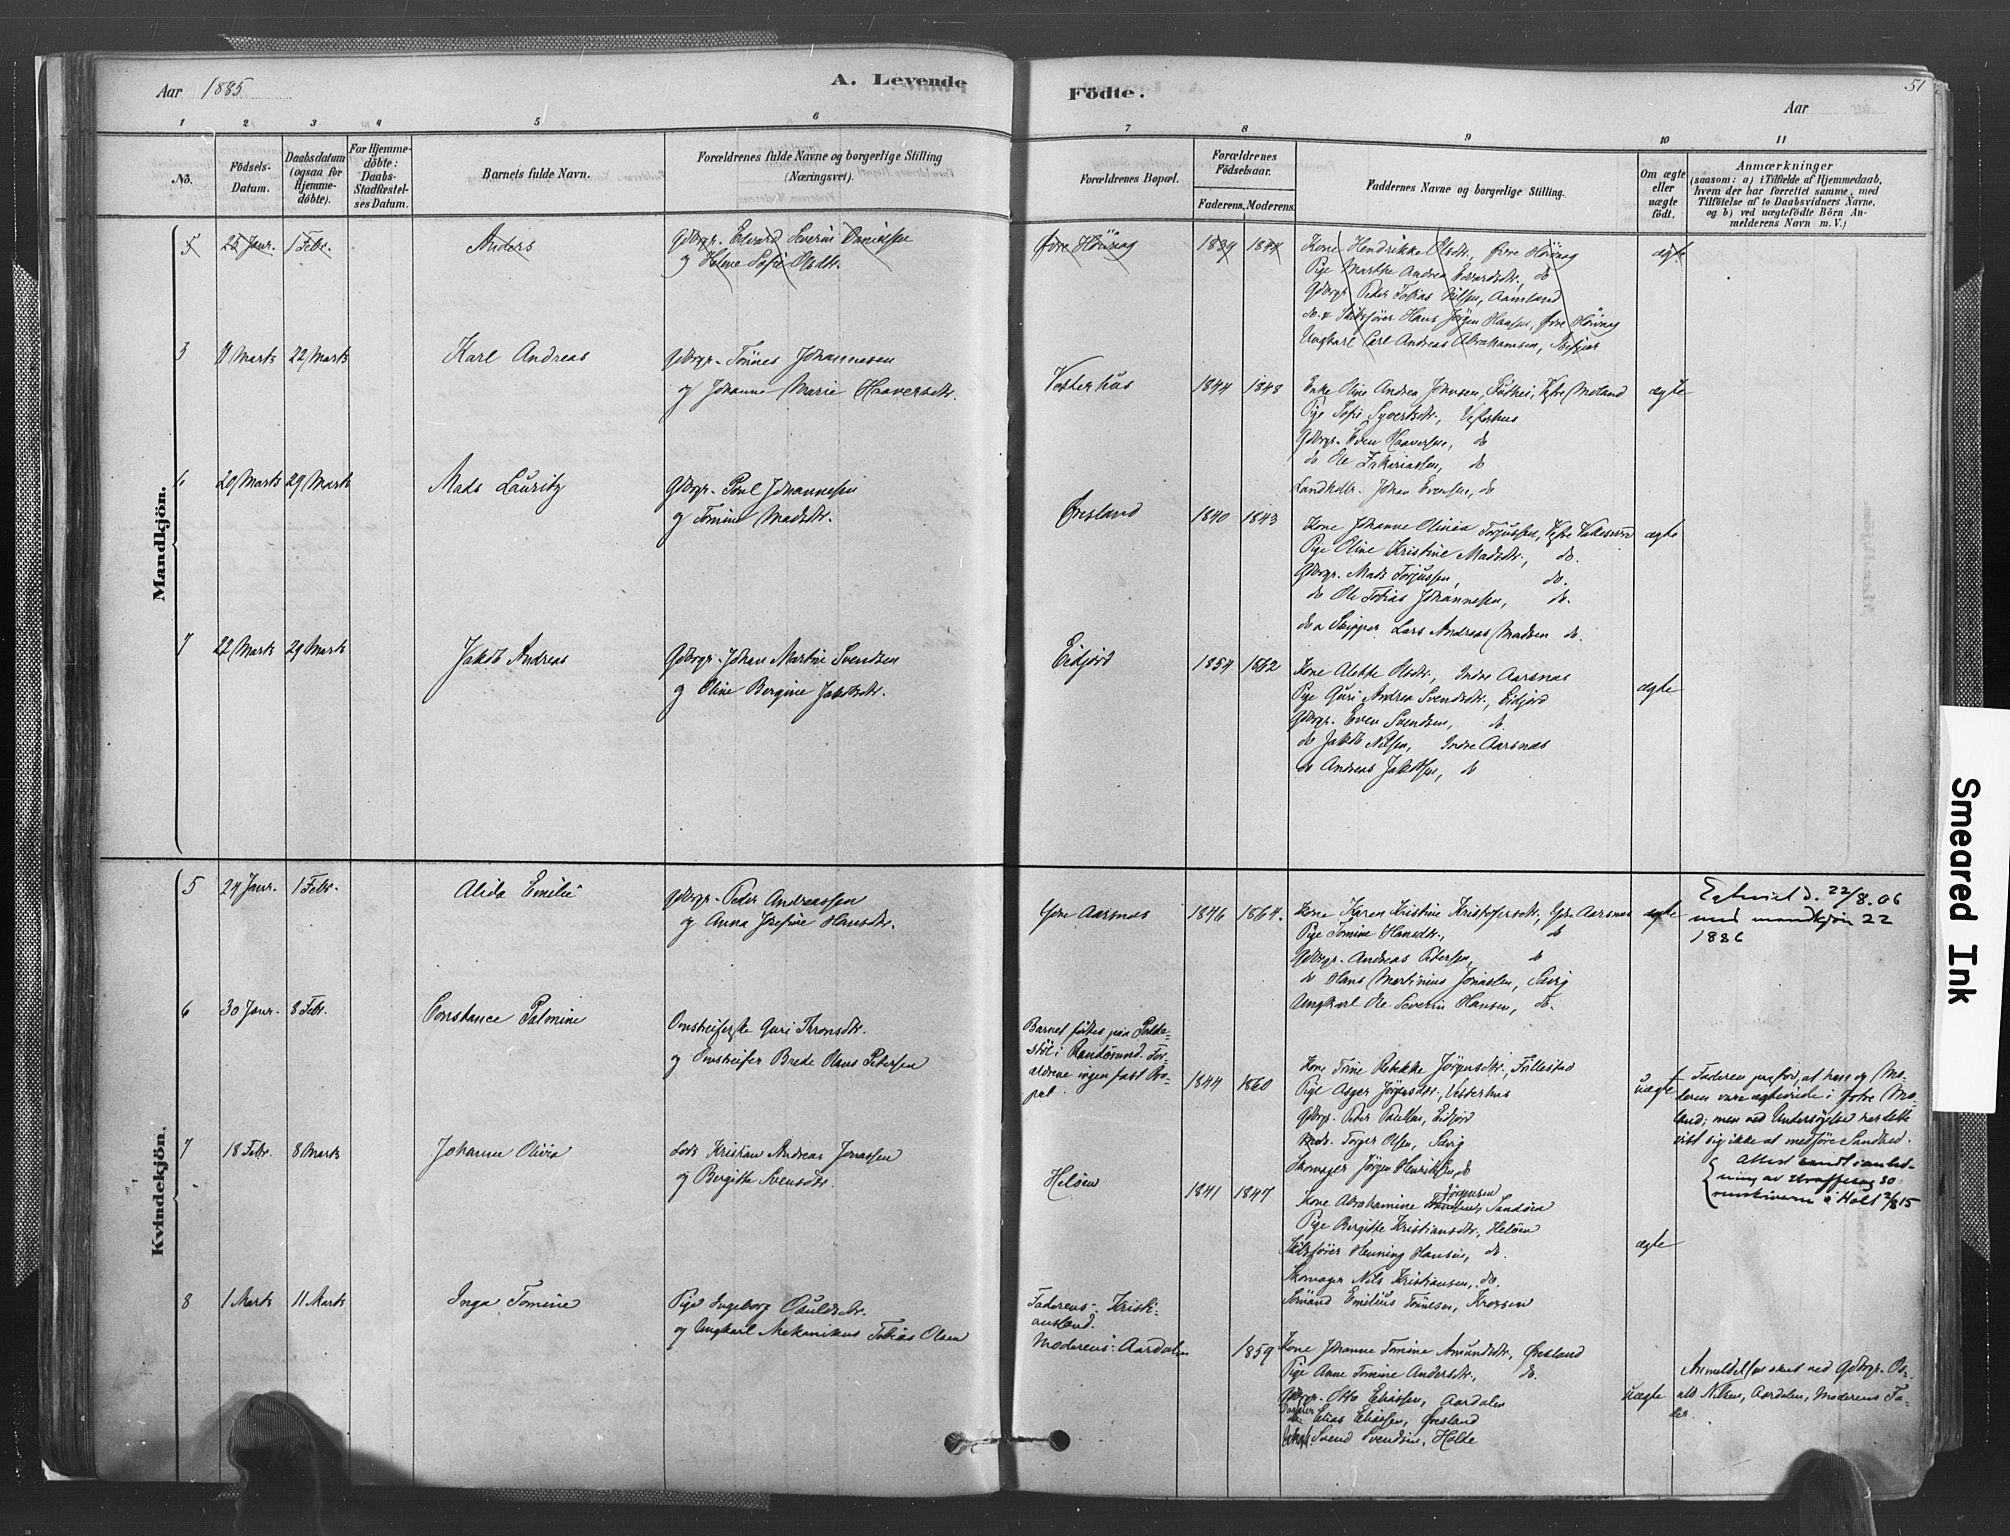 Aar 1885
A. Levende
Födte.
Aar
51
1 2 3 4 5 6 7 8 9 10 11
No.
Födsels-
Datum.
Daabsdatum
(ogsaa for
Hjemme-
döbte).
For Hjemme-
döbte:
Daabs-
Stadfæstel-
ses Datum.
Barnets fulde Navn.
Forældrenes fulde Navne og borgerlige Stilling
(Næringsvei).
Forældrenes Bopæl.
Forældrenes
Födselsaar.
Faderens. Moderens.
Faddernes Navne og borgerlige Stilling.
Om ægte
eller
uægte
födt.
Anmærkninger
(saasom: a) i Tilfælde af Hjemmedaab,
hvem der har forrettet samme, med
Tilföielse af to Daabsvidners Navne,
og b) ved uægtefödte Börn An-
melderens Navn m. V.)
Mandkjön.
5 25 Janr. 1 Febr. Anders
Gdbrgr. Edvard Severin Danielsen
og Helene Sofie Olsdtr.
1839 1844
Kone Hendrikke Olsdtr.,
Pige Marthe Andrea Edvardsdtr., do
Gdbrgr. Peder Tobias Nilsen, Aamland
Skibsfører Hans Jørgen Hansen,
Ungkarl Carl Andreas Abrahamsen,
ægte
3 11 Marts 22 Marts Karl Andreas
Gdbrgr. Tønnes Johannesen
og Johanne Marie Haaversdtr.
Vesterhus 1844 1848
Enke Oline Andrea Johnsen, Vestre Moland
Pige Sofie Syvertsdtr., Vesterhus
Gdbrgr. Even Haaversen, do
do Ole Zakariassen, do
Landhdlr. Johan Evensen, do
ægte
6 20 Marts 29 Marts Mads Lauritz
Gdbrgr. Poul Johannesen
og Tomine Madsdtr.
Øresland 1840 1843
Kone Johanne Olinea Torjussen, Vestre
Pige Oline Kristine Madsdtr., do.
Gdbrgr. Mads Torjussen, do.
do Ole Tobias Johannesen, do.
do & Skipper Lars Andreas Madsen do.
ægte
7 22 Marts 29 Marts Jakob Andreas
Gdbrgr. Johan Martin Svendsen
og Oline Bergine Jakobsdtr.
Eidjord 1854 1862
Kone Alette Olsdtr., Indre Aarsnæs
Pige Guri Andrea Svendsdtr., Eidjord
Gdbrgr. Even Svendsen, do
do Jakob Nilsen, Indre Aarsnæs
do Andreas Jakobsen, do
ægte
Kvindekjön.
5 29 Janr. 1 Febr. Alida Emilie
Gdbrgr. Peder Andreassen
og Anna Josefine Hansdtr.
Ytre Aarsnæs 1846 1864.
Kone Karen Kristine Kristofersdtr., Ytre Aarsnæs
Pige Tomine Hansdtr., do
Gdbrgr. Andreas Pedersen, do
do Hans Martinius Jonassen, Sævig
Ungkarl Ole Severin Hansen, do.
ægte
22/8.06
med mandkjøn 22
1886
6 30 Janr. 8 Febr. Constance Palmine
Omstreiferske Guri Thronsdtr.
og Omstreifer Brede Olaus Petersen
Barnet fødtes paa
i Randøsund. For-
ældrene ingen fast Bo-
pæl.
1844 1860
Kone Trine Rebekke Jørgensdtr., Fillestad
Pige Asger Jørgensdtr., Vesterhus
Gdbrgr. Peder Poulsen, Eidjord
Torger Olsen, Sævig
Skomager Jørgen Henriksen, do
uægte
Faderen paastod, at han og Mo-
deren vare ægteviede i Østre Mo-
land; men ved Undersøgelse har dette
vist sig ikke at medføre Sandhed.
Attest sendt i anled-
ning av straffesag
i Holt 2/8 15
7 18 Febr. 8 Marts Johanne Olivia
Lods Kristian Andreas Jonassen
og Bergitte Svensdtr.
Heløen 1841 1847
Jørgensen
Kone Abrahamine Sandøen
Pige Bergitte Kristiansdtr., Heløen
Skibsfører Henning Hansen, do.
Skomager Nils Kristiansen, do.
Sømand Emilius Tønnesen, Krossen
ægte
8 1 Marts 11 Marts Inga Tomine
Pige Ingeborg Osuldsdtr.
og Ungkarl Mekanikus Tobias Olsen
Faderens: Kristi-
ansand.
Moderens: Aardalen
1859
Kone Johanne Tomine Amundsdtr., Øresland
Pige Anne Tomine Andersdtr., do.
Gdbrgr. Otto Eliassen, Aardalen
Elias Eliassen, Øresland
Svend Svendsen, Holte
uægte
Anmeldelse skete ved Gdbrgr. Os-
uld Nilsen, Aardalen, Moderens Fa-
der.
Smeared Ink